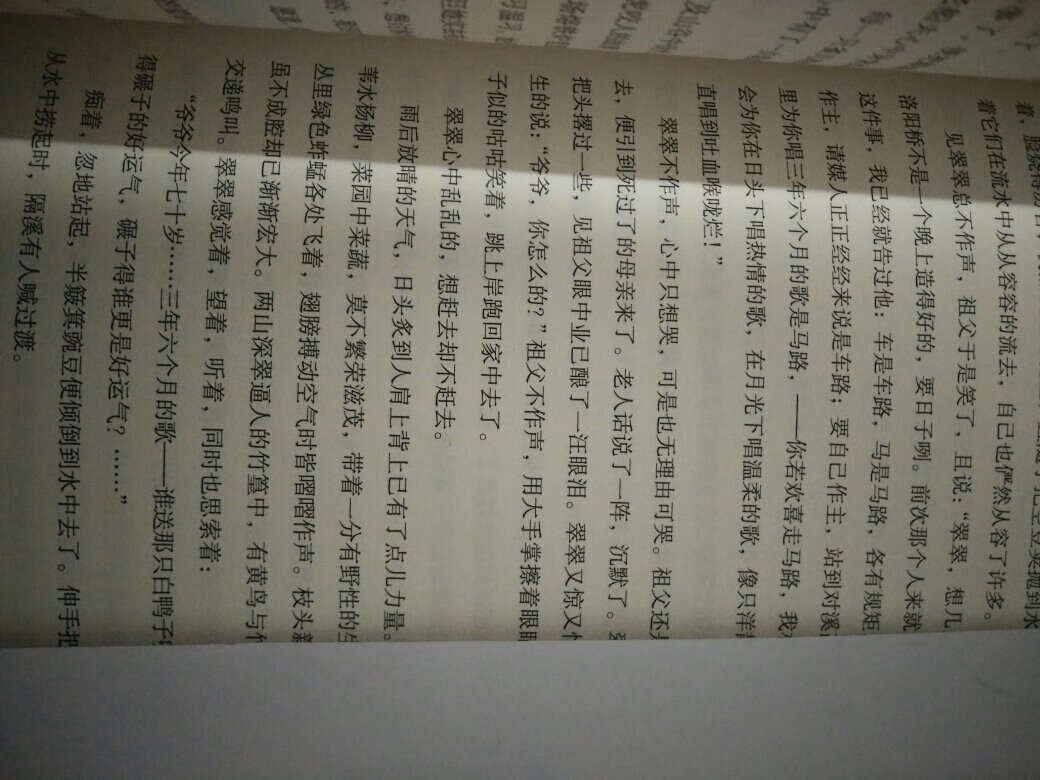 着它们在流水中从从容容的流去，自己也俨然从容了许多。
见翠翠总不作声，祖父于是笑了，且说：“翠翠，想几
洛阳桥不是一个晚上造得好的，要日子咧。前次那个人来就
这件事，我已经就告过他：车是车路，马是马路，各有规矩
作主，请媒人正正经经来说是车路；要自己作主，站到对溪
里为你唱三年六个月的歌是马路，——你若欢喜走马路，我
会为你在日头下唱热情的歌，在月光下唱温柔的歌，像只洋
直唱到吐血喉咙烂！”
翠翠不作声，心中只想哭，可是也无理由可哭。祖父还
去，便引到死过了的母亲来了。老人话说了一阵，沉默了。
把头撂过一些，见祖父眼中业已酿了一汪眼泪。翠翠又惊又
生的说：“爷爷，你怎么的？”祖父不作声，用大手掌擦着眼
子似的咕咕笑着，跳上岸跑回家中去了。
翠翠心中乱乱的，想赶去却不赶去。
雨后放晴的天气，日头炙到人肩上背上已有了点儿力量。
苇水杨柳，菜园中菜蔬，莫不繁荣滋茂，带着一分有野性的生
丛里绿色蚱蜢各处飞着，翅膀搏动空气时皆嚁嚁作声。枝头新
虽不成腔却已渐渐宏大。两山深翠逼人的竹篁中，有黄鸟与竹
交递鸣叫。翠翠感觉着，望着，听着，同时也思索着：
“爷爷今年七十岁……三年六个月的歌——谁送那只白鸭子
得碾子的好运气，碾子得谁更是好运气？……”
痴着，忽地站起，半簸箕豌豆便倾倒到水中去了。伸手把
从水中捞起时，隔溪有人喊过渡。